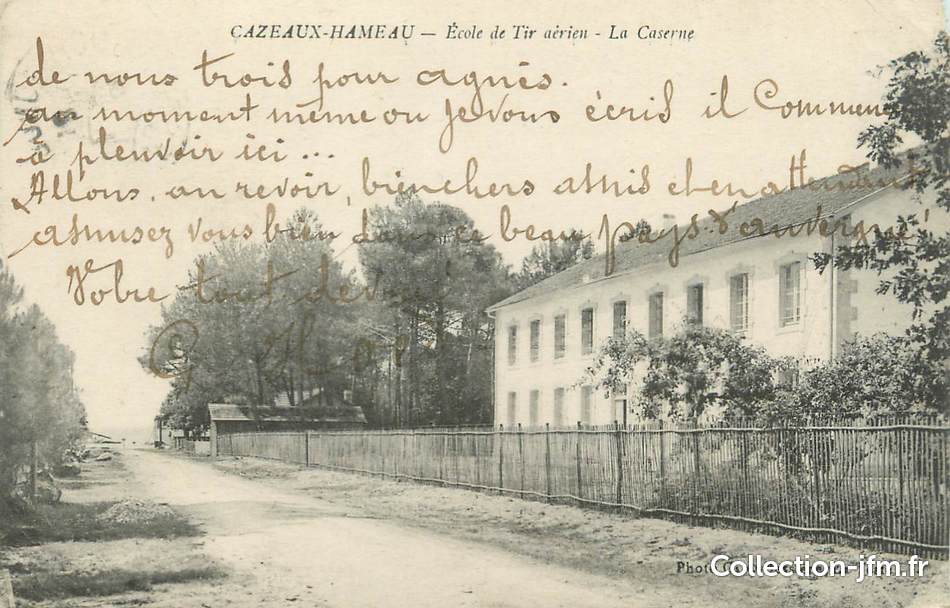 CAZEAUX-HAMEAU — École de Tir aérien - La Caserne
de nous trois pour agnès.
au moment même ou Je vous écris il Commence
à pleuvoir ici ...
Allons, au revoir, bien chers amis et en attendant
amusez vous bien dans ce beau pays d'auvergne
Votre tout dévoué
G
Photo
Collection-jfm.fr